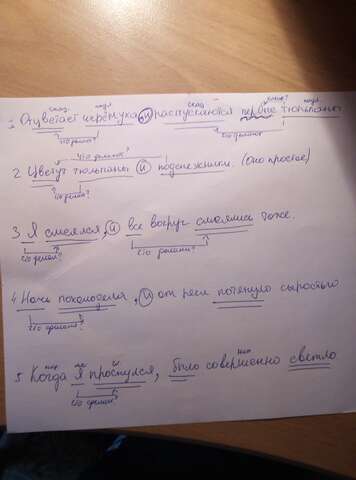 сказ. подл. сказ. какие? подл.
1 Отцветает черёмуха, и распускаются первые тюльпаны
что делает? что делают?
что делают?
2 Цветут тюльпаны и подснежники. (Оно простое)
что делают?
3 Я смеялся, и все вокруг смеялись тоже.
что делал? что делали?
4 Ночь похолодела, и от реки потянуло сыростью
что сделала?
5 Когда я проснулся, было совершенно светло
что сделал?